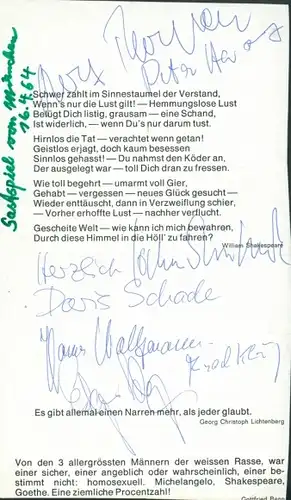 Gastspiel von München
16.4.64
Peter
Schwer zahlt im Sinnestaumel der Verstand,
Wenn's nur die Lust gilt! — Hemmungslose Lust
Belügt Dich listig, grausam — eine Schand,
Ist widerlich, — wenn Du's nur darum tust.
Hirnlos die Tat — verachtet wenn getan!
Geistlos erjagt, doch kaum besessen
Sinnlos gehasst! — Du nahmst den Köder an,
Der ausgelegt war — toll Dich dran zu fressen.
Wie toll begehrt — umarmt voll Gier,
Gehabt — vergessen — neues Glück gesucht —
Wieder enttäuscht, dann in Verzweiflung schier,
— Vorher erhoffte Lust — nachher verflucht.
Gescheite Welt — wie kann ich mich bewahren,
Durch diese Himmel in die Höll' zu fahren?
William Shakespeare
Herzlich
Doris Schade
Hans
Es gibt allemal einen Narren mehr, als jeder glaubt.
Georg Christoph Lichtenberg
Von den 3 allergrössten Männern der weissen Rasse, war
einer sicher, einer angeblich oder wahrscheinlich, einer be-
stimmt nicht: homosexuell. Michelangelo, Shakespeare,
Goethe. Eine ziemliche Procentzahl!
Gottfried Benn